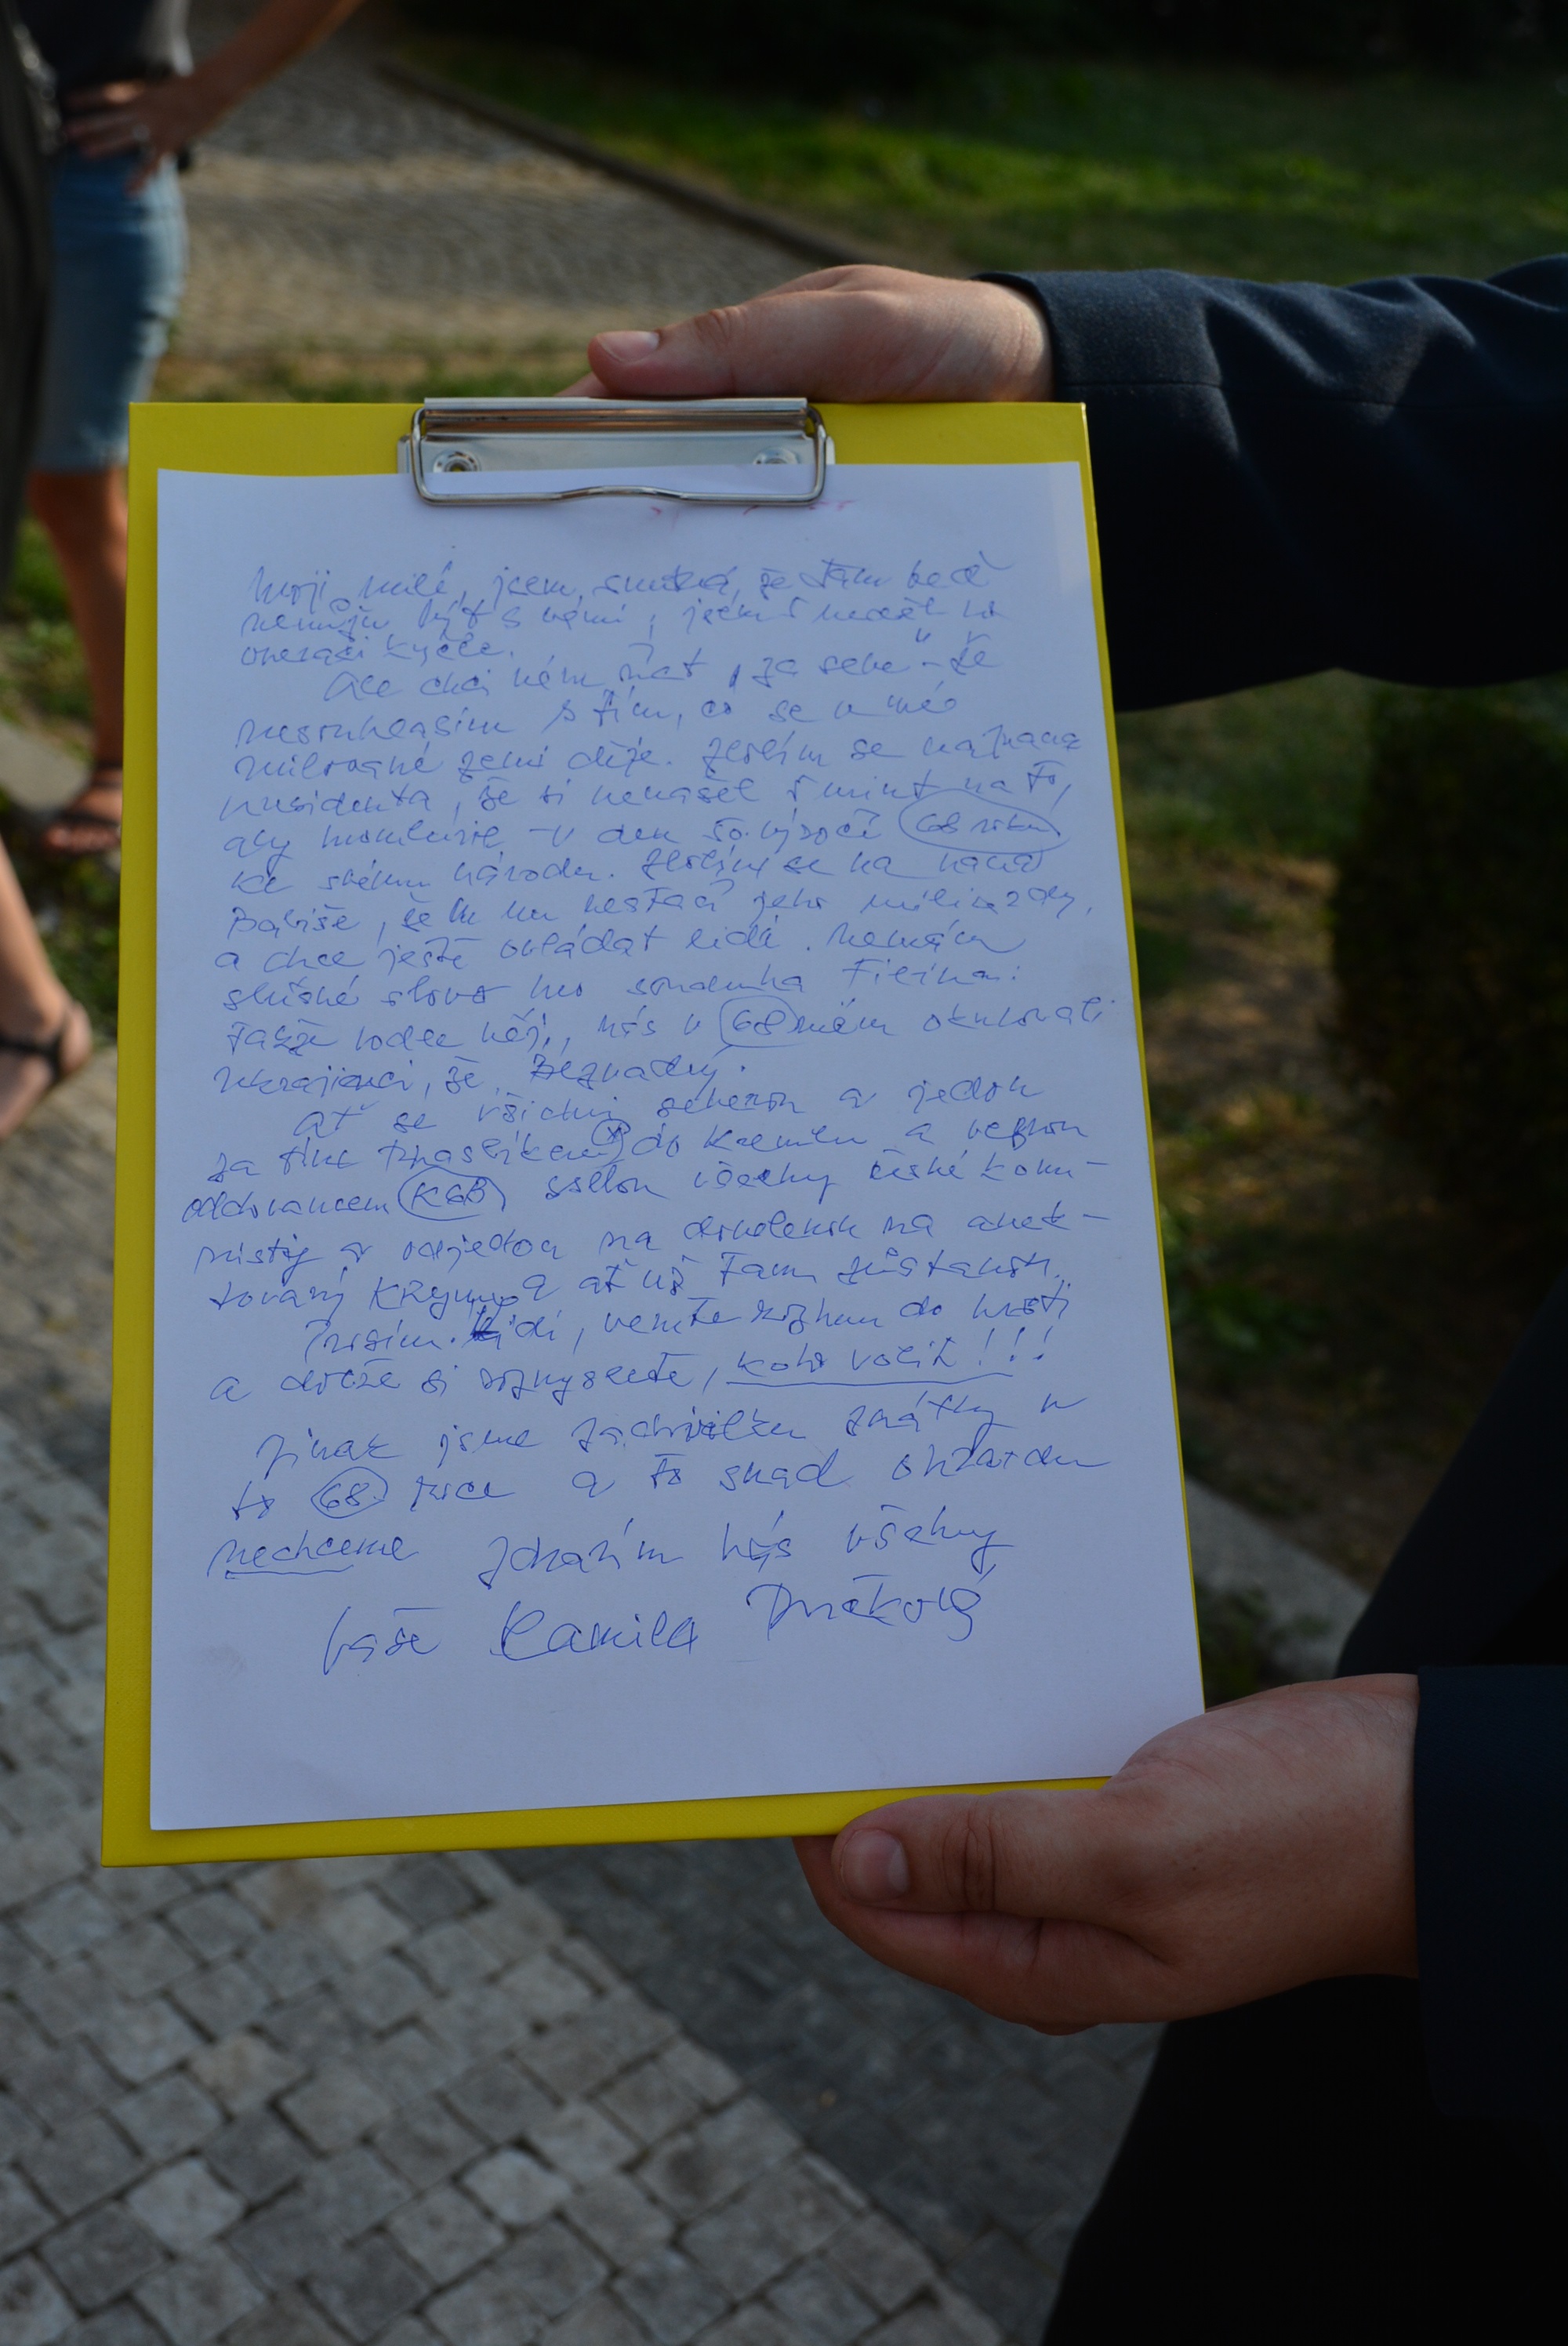 Moji milí, jsem smutná, že tam teď
nemůžu být s vámi, ještě ležet na
operaci kyčle.
Ale chci vám říct „za sebe" – že
nesouhlasím s tím, co se v mé
milované zemi děje. Zlobím se na pana
presidenta, že si nenašel 5 minut na to,
aby promluvil – v den 50. výročí 68 roku
ke svému národu. Zlobím se na pana
Babiše, že mu nestačí jeho miliardy,
a chce ještě ovládat lidi. Nemám
slušné slovo pro soudruha Filipa:
Takže podle něj, nás v 68mém okupovali
Ukrajinci, že. Bezva
Ať se všichni seberou a jedou
za tím do Kremlu a vezmou
oddovancem KGB sebou všechny české komu-
nisty a odjedou na dovolenou na anek-
tovaný Krym a ať už tam zůstanou.
Prosím lidi, vemte rozum do hrsti
a dobře si rozmyslete, koho volit!!!
Jinak jsme zachvilku zpátky v
to 68 roce a to snad opravdu
nechceme Zdravím vás všechny
Vaše Kamila